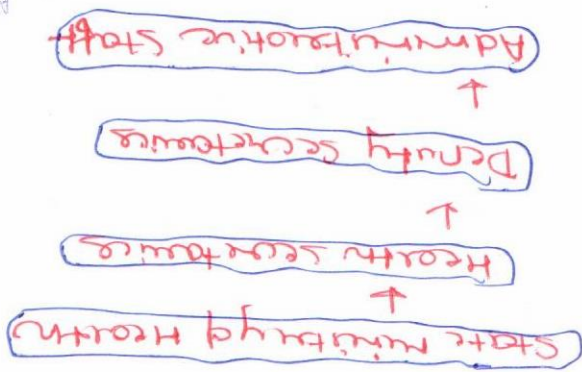 State Ministry of Health
↓
Health Secretaries
↓
Deputy Secretaries
↓
Administrative Staff